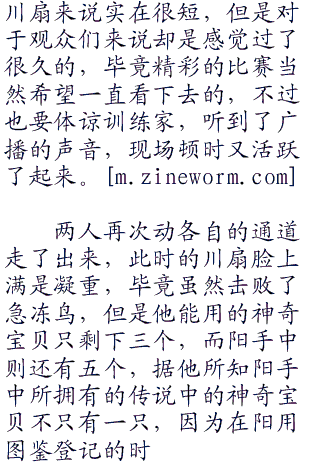 川扇来说实在很短，但是对
于观众们来说却是感觉过了
很久的，毕竟精彩的比赛当
然希望一直看下去的，不过
也要体谅训练家，听到了广
播的声音，现场顿时又活跃
了起来。[m.zineworm.com]
两人再次动各自的通道
走了出来，此时的川扇脸上
满是凝重，毕竟虽然击败了
急冻鸟，但是他能用的神奇
宝贝只剩下三个，而阳手中
则还有五个，据他所知阳手
中所拥有的传说中的神奇宝
贝不只有一只，因为在阳用
图鉴登记的时